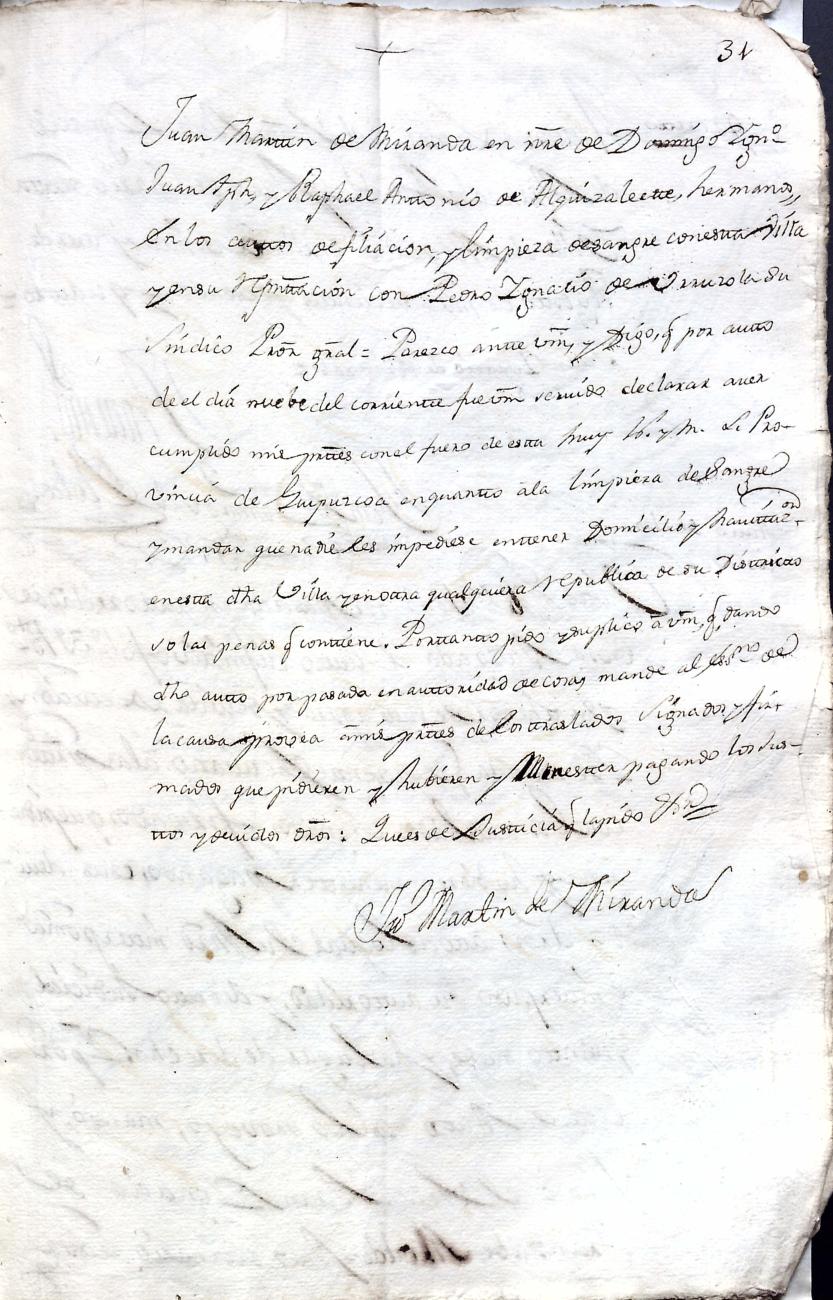 31
Juan Martin de Miranda en nre de Domingo Ygno
Juan Jph, y Raphael Antonio de Alquizalecte, hermanos,
en los auttos de filiacion, y limpieza de sangre con estta Villa
y en su Represnttación con Pedro Ygnatio de Urruzola su
Sindico Pror gral = Parezco antte vm, y Digo, q por autto
de el dia nuebe del corrientte fue vm servido declarar aver
cumplido mis parttes con el fuero de estta muy N. y M. L. Pro-
vincia de Guipuzcoa en quantto à la limpieza de Sangre
y mandar que nadie les impediese en ttener Domicilio y havittacon
en estta dha Villa y en otra qualquiera republica de su Disttricto
so las penas q conttiene. Por ttantto pido y suplico à vm, q dando
dho autto por pasado en autthoridad de cosa, mande al Essno de
la causa provea à mis parttes de los ttraslados Signados y fir-
mados que pidieren y hubieren Menestter pagando los sus-
ttos y devidos dros: Que es de Justticia q la pido &a
Juo Martin de Miranda